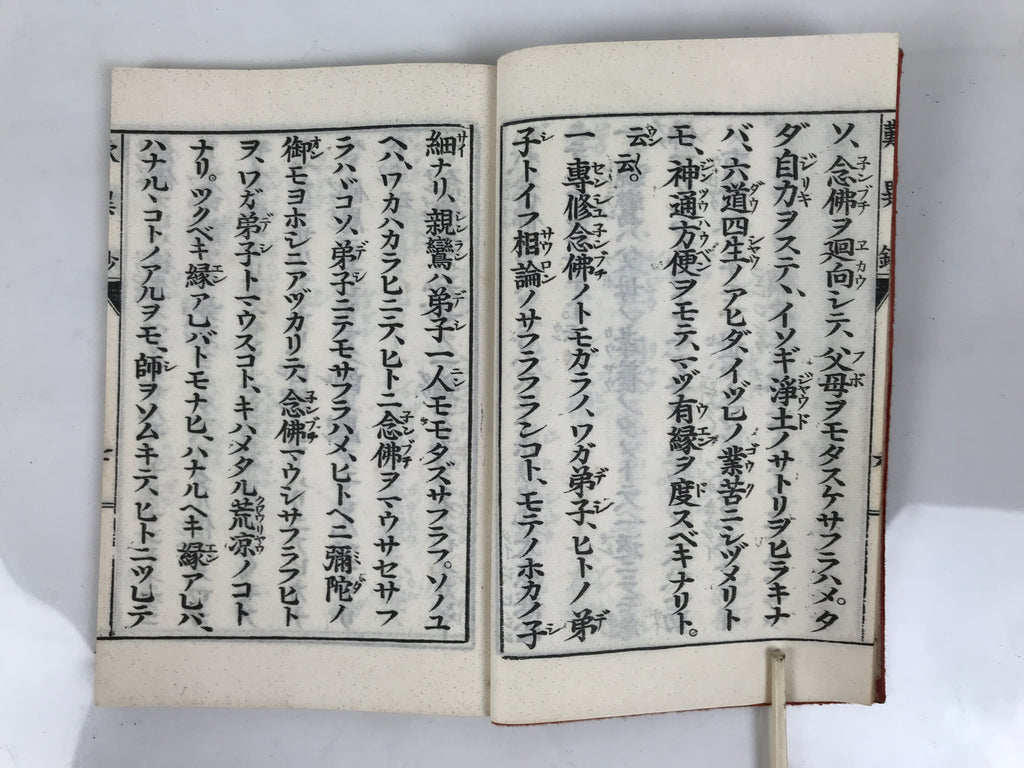 歎異鈔
ソ、念佛ヲ廻向シテ、父母ヲモタスケサフラハメ。タ
ダ自力ヲステヽ、イソギ淨土ノサトリヲヒラキナ
バ、六道四生ノアヒダ、イヅレノ業苦ニシヅメリト
モ、神通方便ヲモテ、マヅ有縁ヲ度スベキナリト。
云云。
一 專修念佛ノトモガラノ、ワガ弟子、ヒトノ弟
子トイフ相論ノサフラフランコト、モテノホカノ子
細ナリ、親鸞ハ弟子一人モモタズサフラフ。ソノユ
ヘハ、ワカハカラヒニテ、ヒトニ念佛ヲマウサセサフ
ラハヾコソ、弟子ニテモサフラハメ、ヒトヘニ彌陀ノ
御モヨホシニアヅカリテ、念佛マウシサフラフヒト
ヲ、ワガ弟子トマウスコト、キハメタル荒凉ノコト
ナリ。ツクベキ縁アレバトモナヒ、ハナルヘキ縁アレバ、
ハナルヽコトノアルヲモ、師ヲソムキテ、ヒトニツレテ